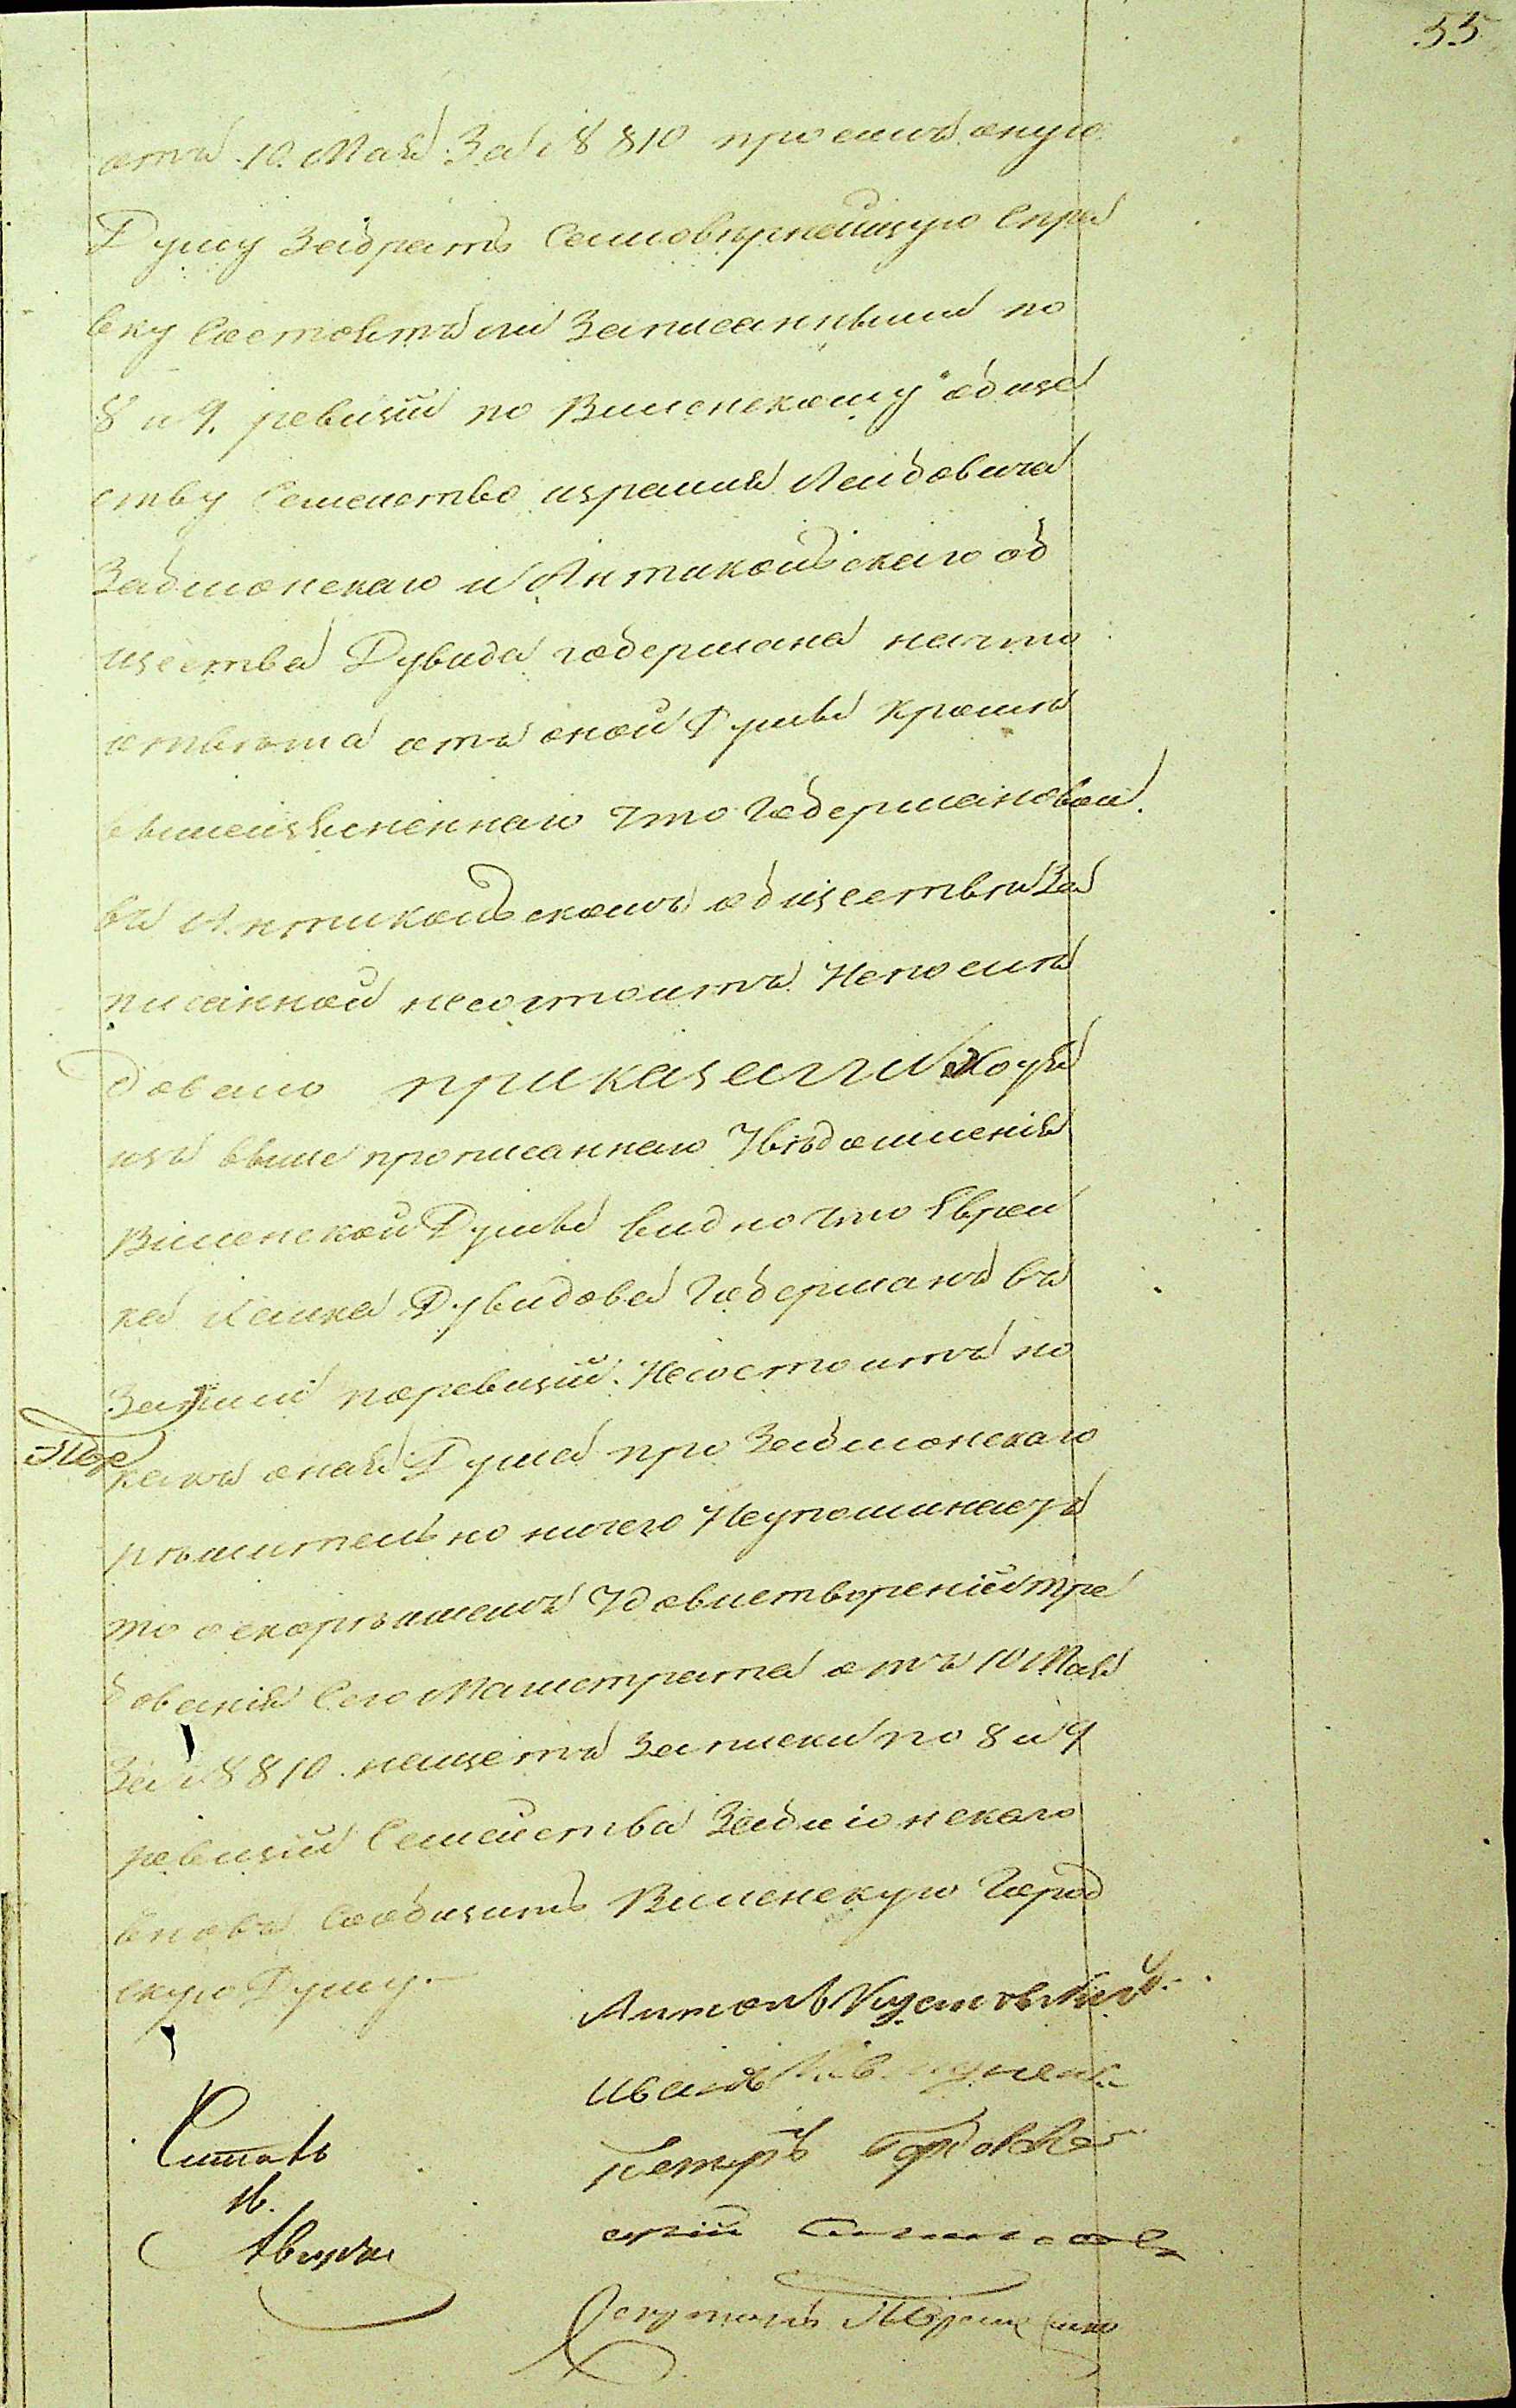 55
отъ 10. Мая За № 8810 просилъ оную
Думу Забрать Самовѣрнѣйшую Спра
вку Состоитъ ли Записаннымъ по
8 и 9. ревизіи по Виленскому обще
ству Семейство израиля Лейбовича
Забмонскаго и Антокольскаго об
щества Дувида Гобермана начто
отвѣта отъ оной Думы кромѣ
вышеизъясненнаго что Гобермановой
въ Антокольскомъ обществѣ За
писанной несостоитъ Непослѣ
довало приказали Хотя
изъ выше прописаннаго Увѣдомленія
Виленской Думы видно что Еврей
ка Ханка Дувидова Гоберманъ въ
Записи поревизіи Несостоитъ но
какъ оная Дума про Забмонскаго
рѣшительно ничего Неупоминаетъ
то о скорѣйшемъ Удовлетвореніи тре
бованія Сего Магистрата отъ 10 Мая
За № 8810. нащетъ Записки по 8 и 9
ревизіи Семейства Забмонскаго
вновь Сообщить Виленскую Город
скую Думу.
Антонъ
Иванъ
Петръ
Читалъ